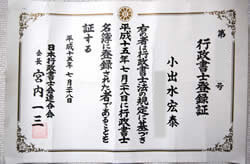 第　号
行政書士登録証
小出水宏泰
右の者は行政書士法の規定に基づき
平成十五年七月二十八日に行政書士
名簿に登録された者であることを
証する
平成十五年七月二十八日
日本行政書士会連合会
会長 宮内一三